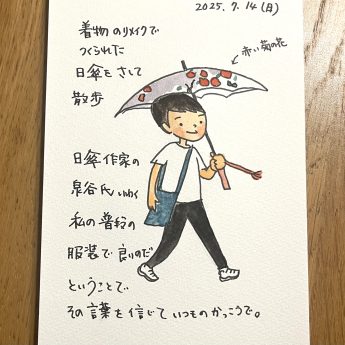 2025.7.14(月)
着物のリメイクで
つくられた
日傘をさして
散歩
赤い菊の花
日傘作家の
泉谷氏いわく
私の普段の
服装で良いのだ
ということで
その言葉を信じていつものかっこうで。